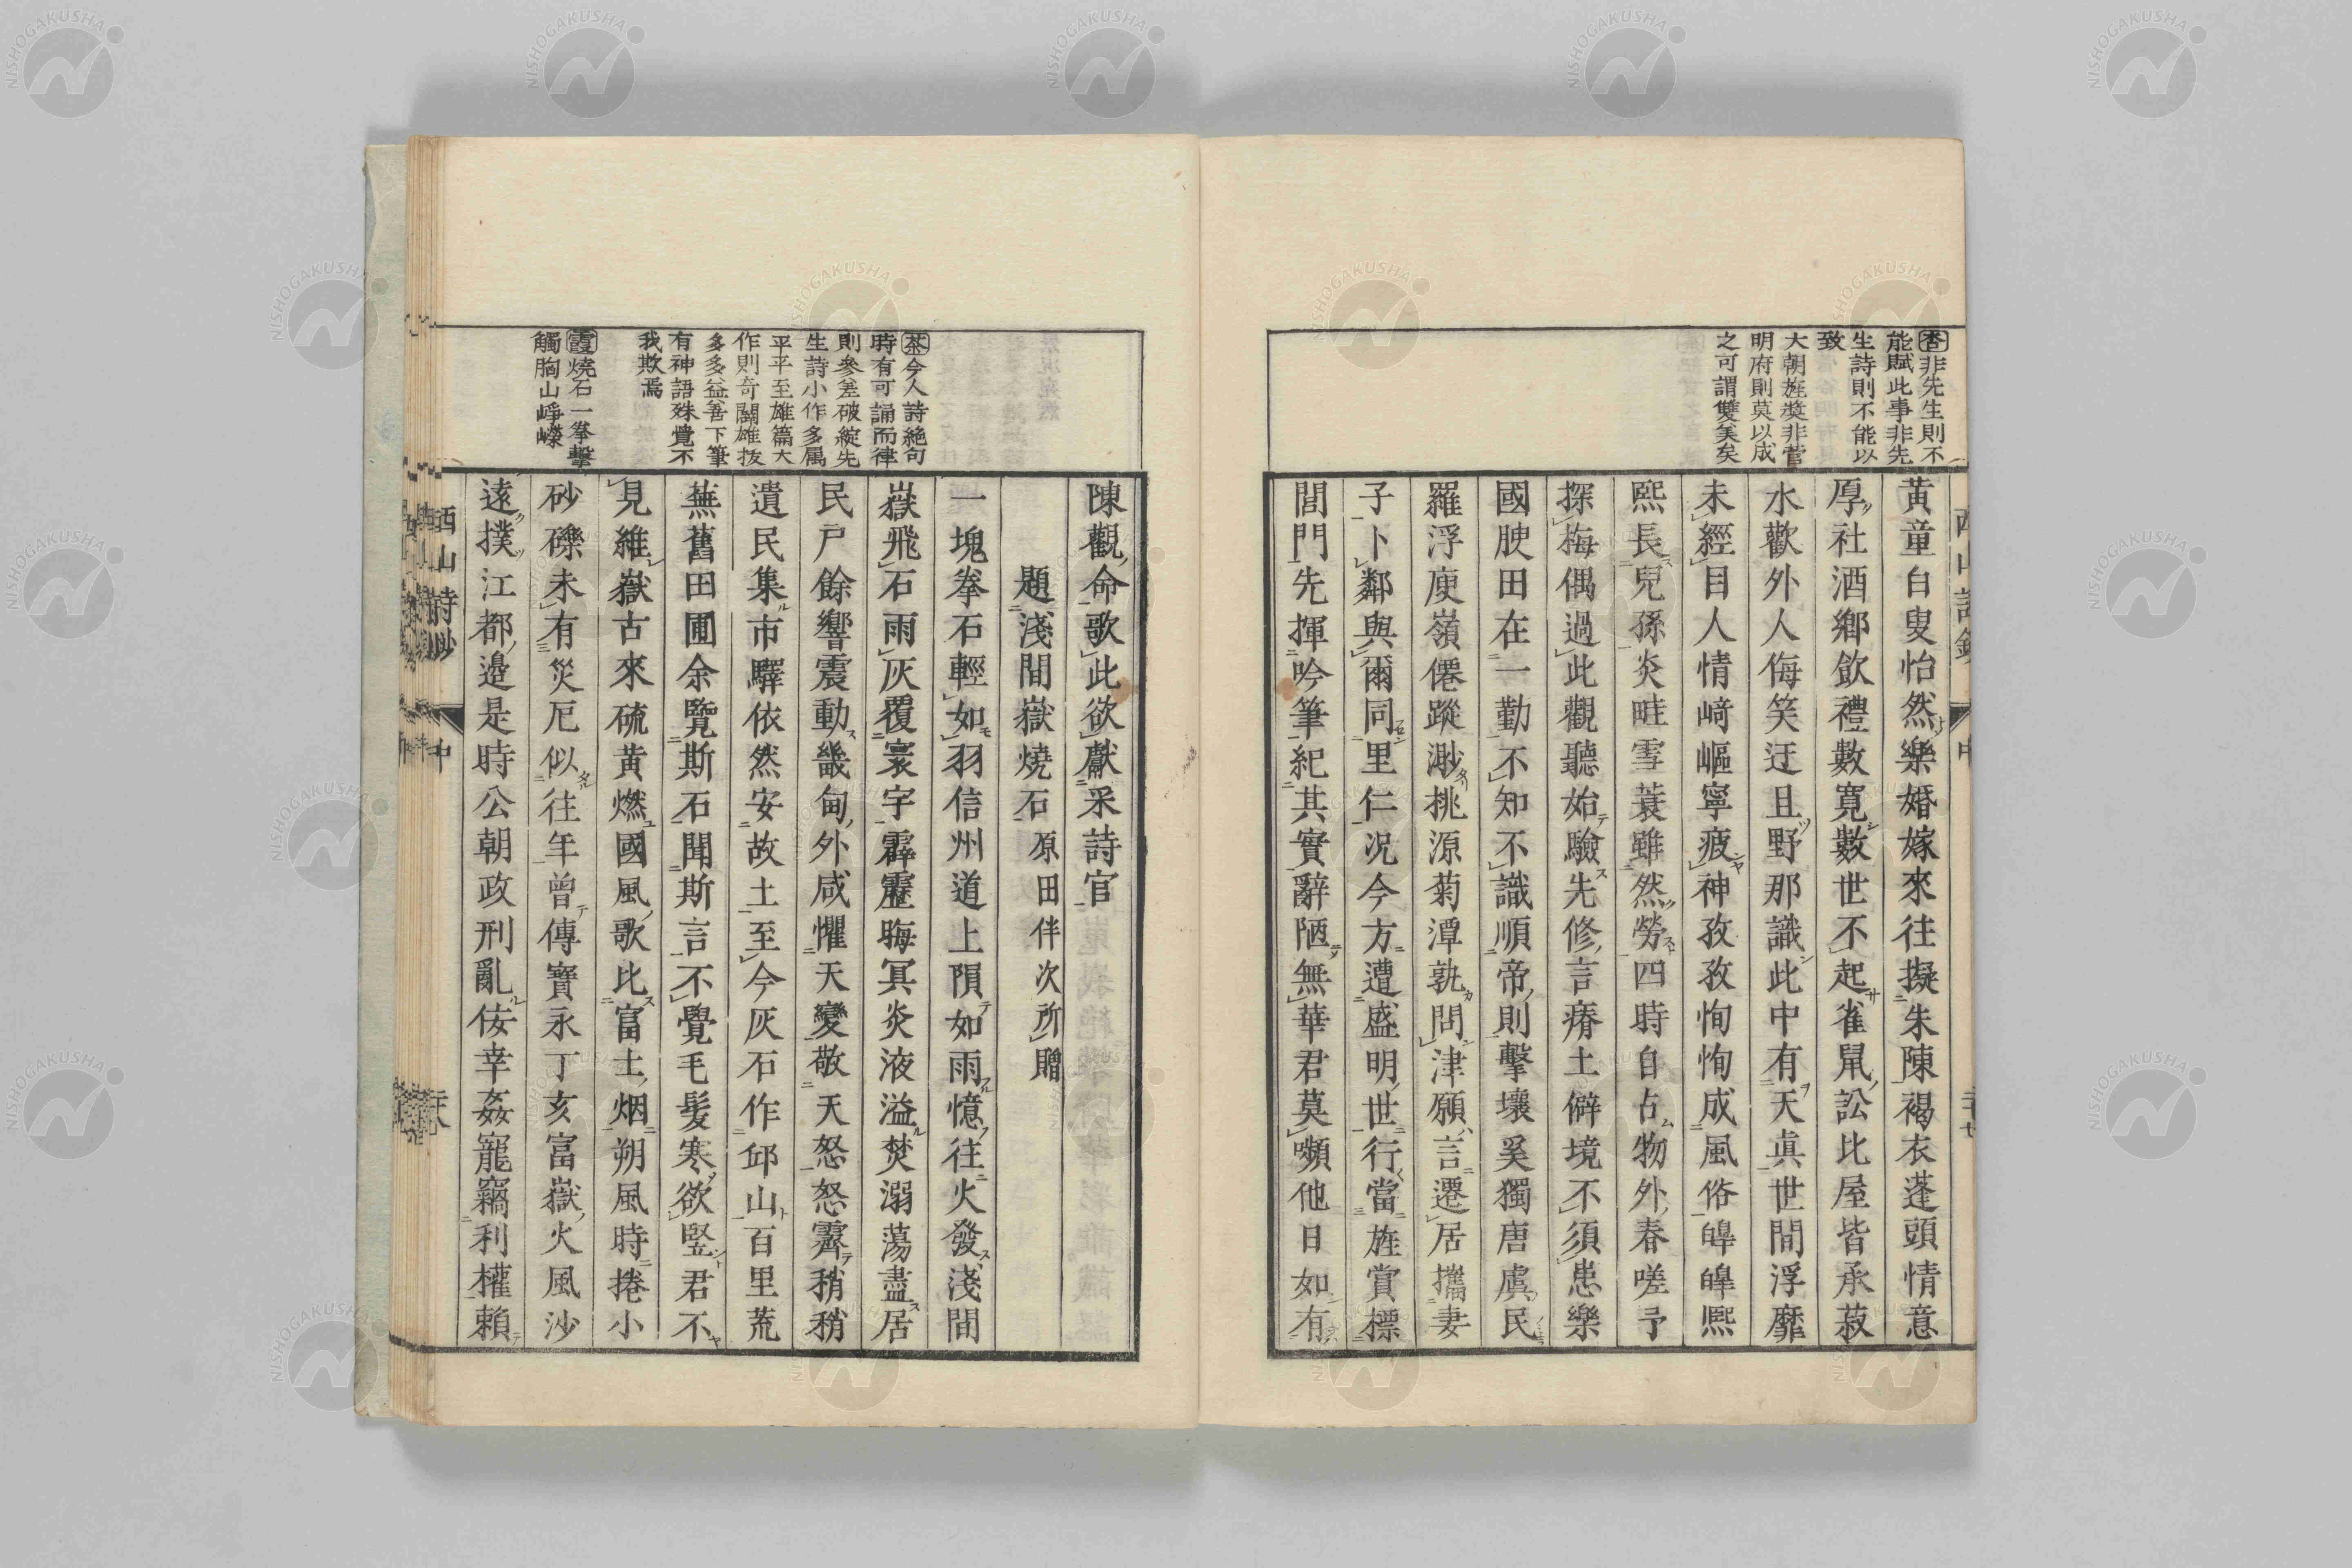 杏非先生則不
能賦此事非先
生詩則不能以
致
大朝旌奬非菅
明府則莫以成
之可謂雙美矣
黃童白叟怡然樂婚嫁來往擬朱陳褐衣蓬頭情意
厚社酒鄉飲禮數寬數世不起雀鼠訟比屋皆承菽
水歡外人侮笑迂且野那識此中有天眞世間浮靡
未經目人情崎嶇寧疲神孜孜恂恂成風俗皞皞熈
熙長兒孫炎畦雪蓑雖然勞四時自占物外春嗟予
探梅偶過此觀聽始驗先修言瘠土僻境不須患樂
國腴田在一勤不知不識順帝則擊壤奚獨唐虞民
羅浮庾嶺僊蹤渺桃源菊潭孰問津願言遷居攜妻
子卜鄰與爾同里仁況今方遭盛明世行當旌賞標
閭門先揮吟筆紀其實辭陋無華君莫嚬他日如有
西山詩鈔
中
二十七
茶今人詩絕句
時有可誦而律
則參差破綻先
生詩小作多属
平平至雄篇大
作則奇闢雄拔
多多益善下筆
有神語殊覺不
我欺焉
霞燒石一拳擊
觸胸山崢嶸
陳觀命歌此欲獻采詩官
題淺間嶽燒石原田伴次所贈
一塊拳石輕如羽信州道上隕如雨憶往火發淺間
嶽飛石雨灰覆寰宇霹靂晦冥炎液溢焚溺蕩盡居
民戶餘響震動畿甸外咸懼天變敬天怒怒霽稍稍
遺民集市驛依然安故土至今灰石作邱山百里荒
蕪舊田圃余覽斯石聞斯言不覺毛髮寒欲竪君不
見維嶽古來硫黃燃國風歌比富士烟朔風時捲小
砂礫未有災厄似往年曾傳寶永丁亥富嶽火風沙
遠撲江都邉是時公朝政刑亂佞幸姦寵竊利權賴
西山詩鈔
中
NISHOGAKUSHA